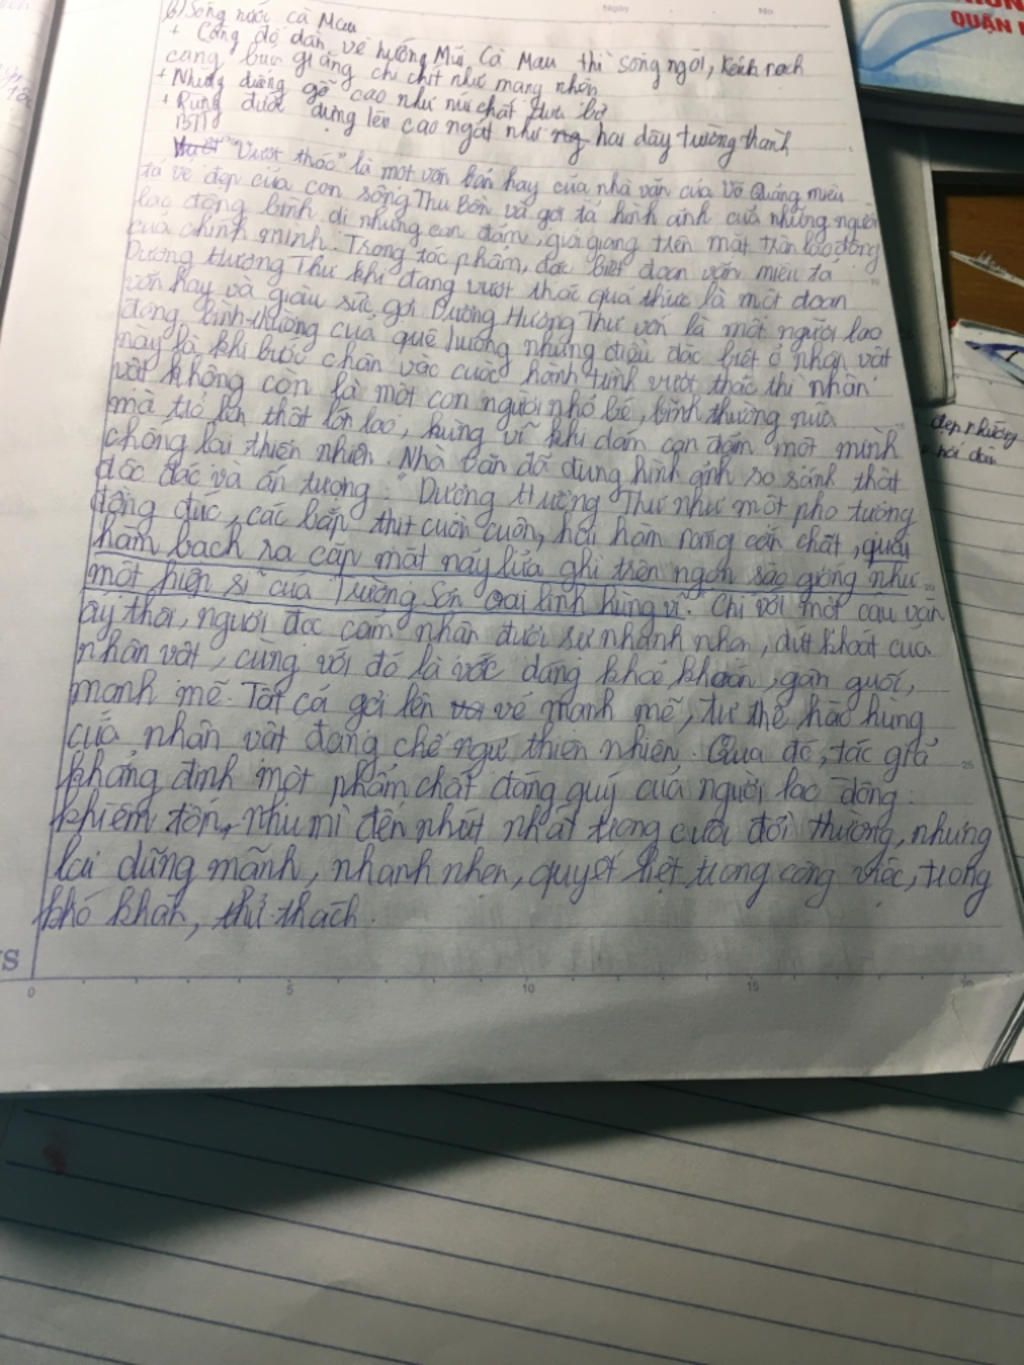 b) Sông nước Cà Mau
+ Càng đổ dần về hướng Mũi Cà Mau thì sông ngòi, kênh rạch
càng bủa giăng chi chít như mạng nhện
+ Những đường gỗ cao như núi chất dựa bờ
+ Rừng đước dựng lên cao ngất như hai dãy trường thành
BTJ
"Vượt thác" là một văn bản hay của nhà văn của Võ Quảng miêu
tả vẻ đẹp của con sông Thu Bồn và gợi tả hình ảnh của những người
lao động bình dị nhưng can đảm, giỏi giang trên mặt trận lao động
của chính mình. Trong tác phẩm, đặc biệt đoạn văn miêu tả
Dượng Hương Thư khi đang vượt thác quả thực là một đoạn
văn hay và giàu sức gợi. Dượng Hương Thư vốn là một người lao
động bình thường của quê hương nhưng điều đặc biệt ở nhân vật
này là khi bước chân vào cuộc hành trình vượt thác thì nhân
vật không còn là một con người nhỏ bé, bình thường nữa
mà trở lên thật lớn lao, hùng vĩ khi dám can đảm một mình
chống lại thiên nhiên. Nhà văn đã dùng hình ảnh so sánh thật
độc đắc và ấn tượng: "Dượng Hương Thư như một pho tượng
đồng đúc, các bắp thịt cuồn cuộn, hai hàm răng cắn chặt, quai
hàm bạch ra cặp mắt nảy lửa ghì trên ngọn sào giống như
một hiệp sĩ của Trường Sơn oai linh hùng vĩ." Chỉ với một câu văn
ấy thôi, người đọc cảm nhận được sự nhanh nhẹn, dứt khoát của
nhân vật, cùng với đó là vóc dáng khoẻ khoắn, gân guốc,
mạnh mẽ. Tất cả gợi lên vẻ mạnh mẽ, tư thế hào hùng
của nhân vật đang chế ngự thiên nhiên. Qua đó, tác giả
khẳng định một phẩm chất đáng quý của người lao động:
khiêm tốn, nhu mì đến nhút nhát trong cuộc đời thường, nhưng
lại dũng mãnh, nhanh nhẹn, quyết liệt trong công việc, trong
khó khăn, thử thách.
Ngày
No.
QUẬN
đẹp nhường
0 5 10 15 20